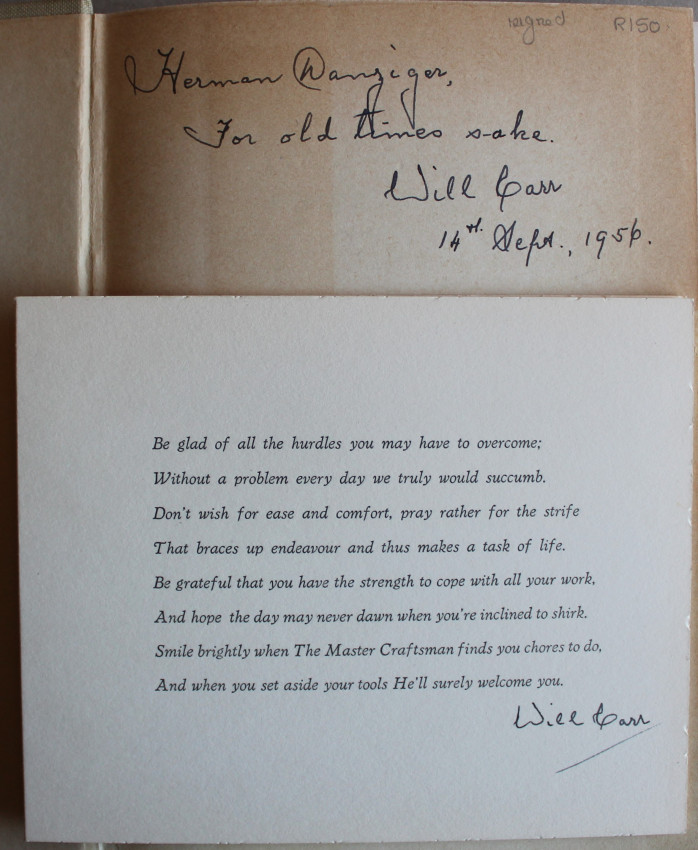 signed R150
Herman Danziger,
For old times sake.
Will Carr
14th. Sept., 1956.
Be glad of all the hurdles you may have to overcome;
Without a problem every day we truly would succumb.
Don't wish for ease and comfort, pray rather for the strife
That braces up endeavour and thus makes a task of life.
Be grateful that you have the strength to cope with all your work,
And hope the day may never dawn when you're inclined to shirk.
Smile brightly when The Master Craftsman finds you chores to do,
And when you set aside your tools He'll surely welcome you.
Will Carr